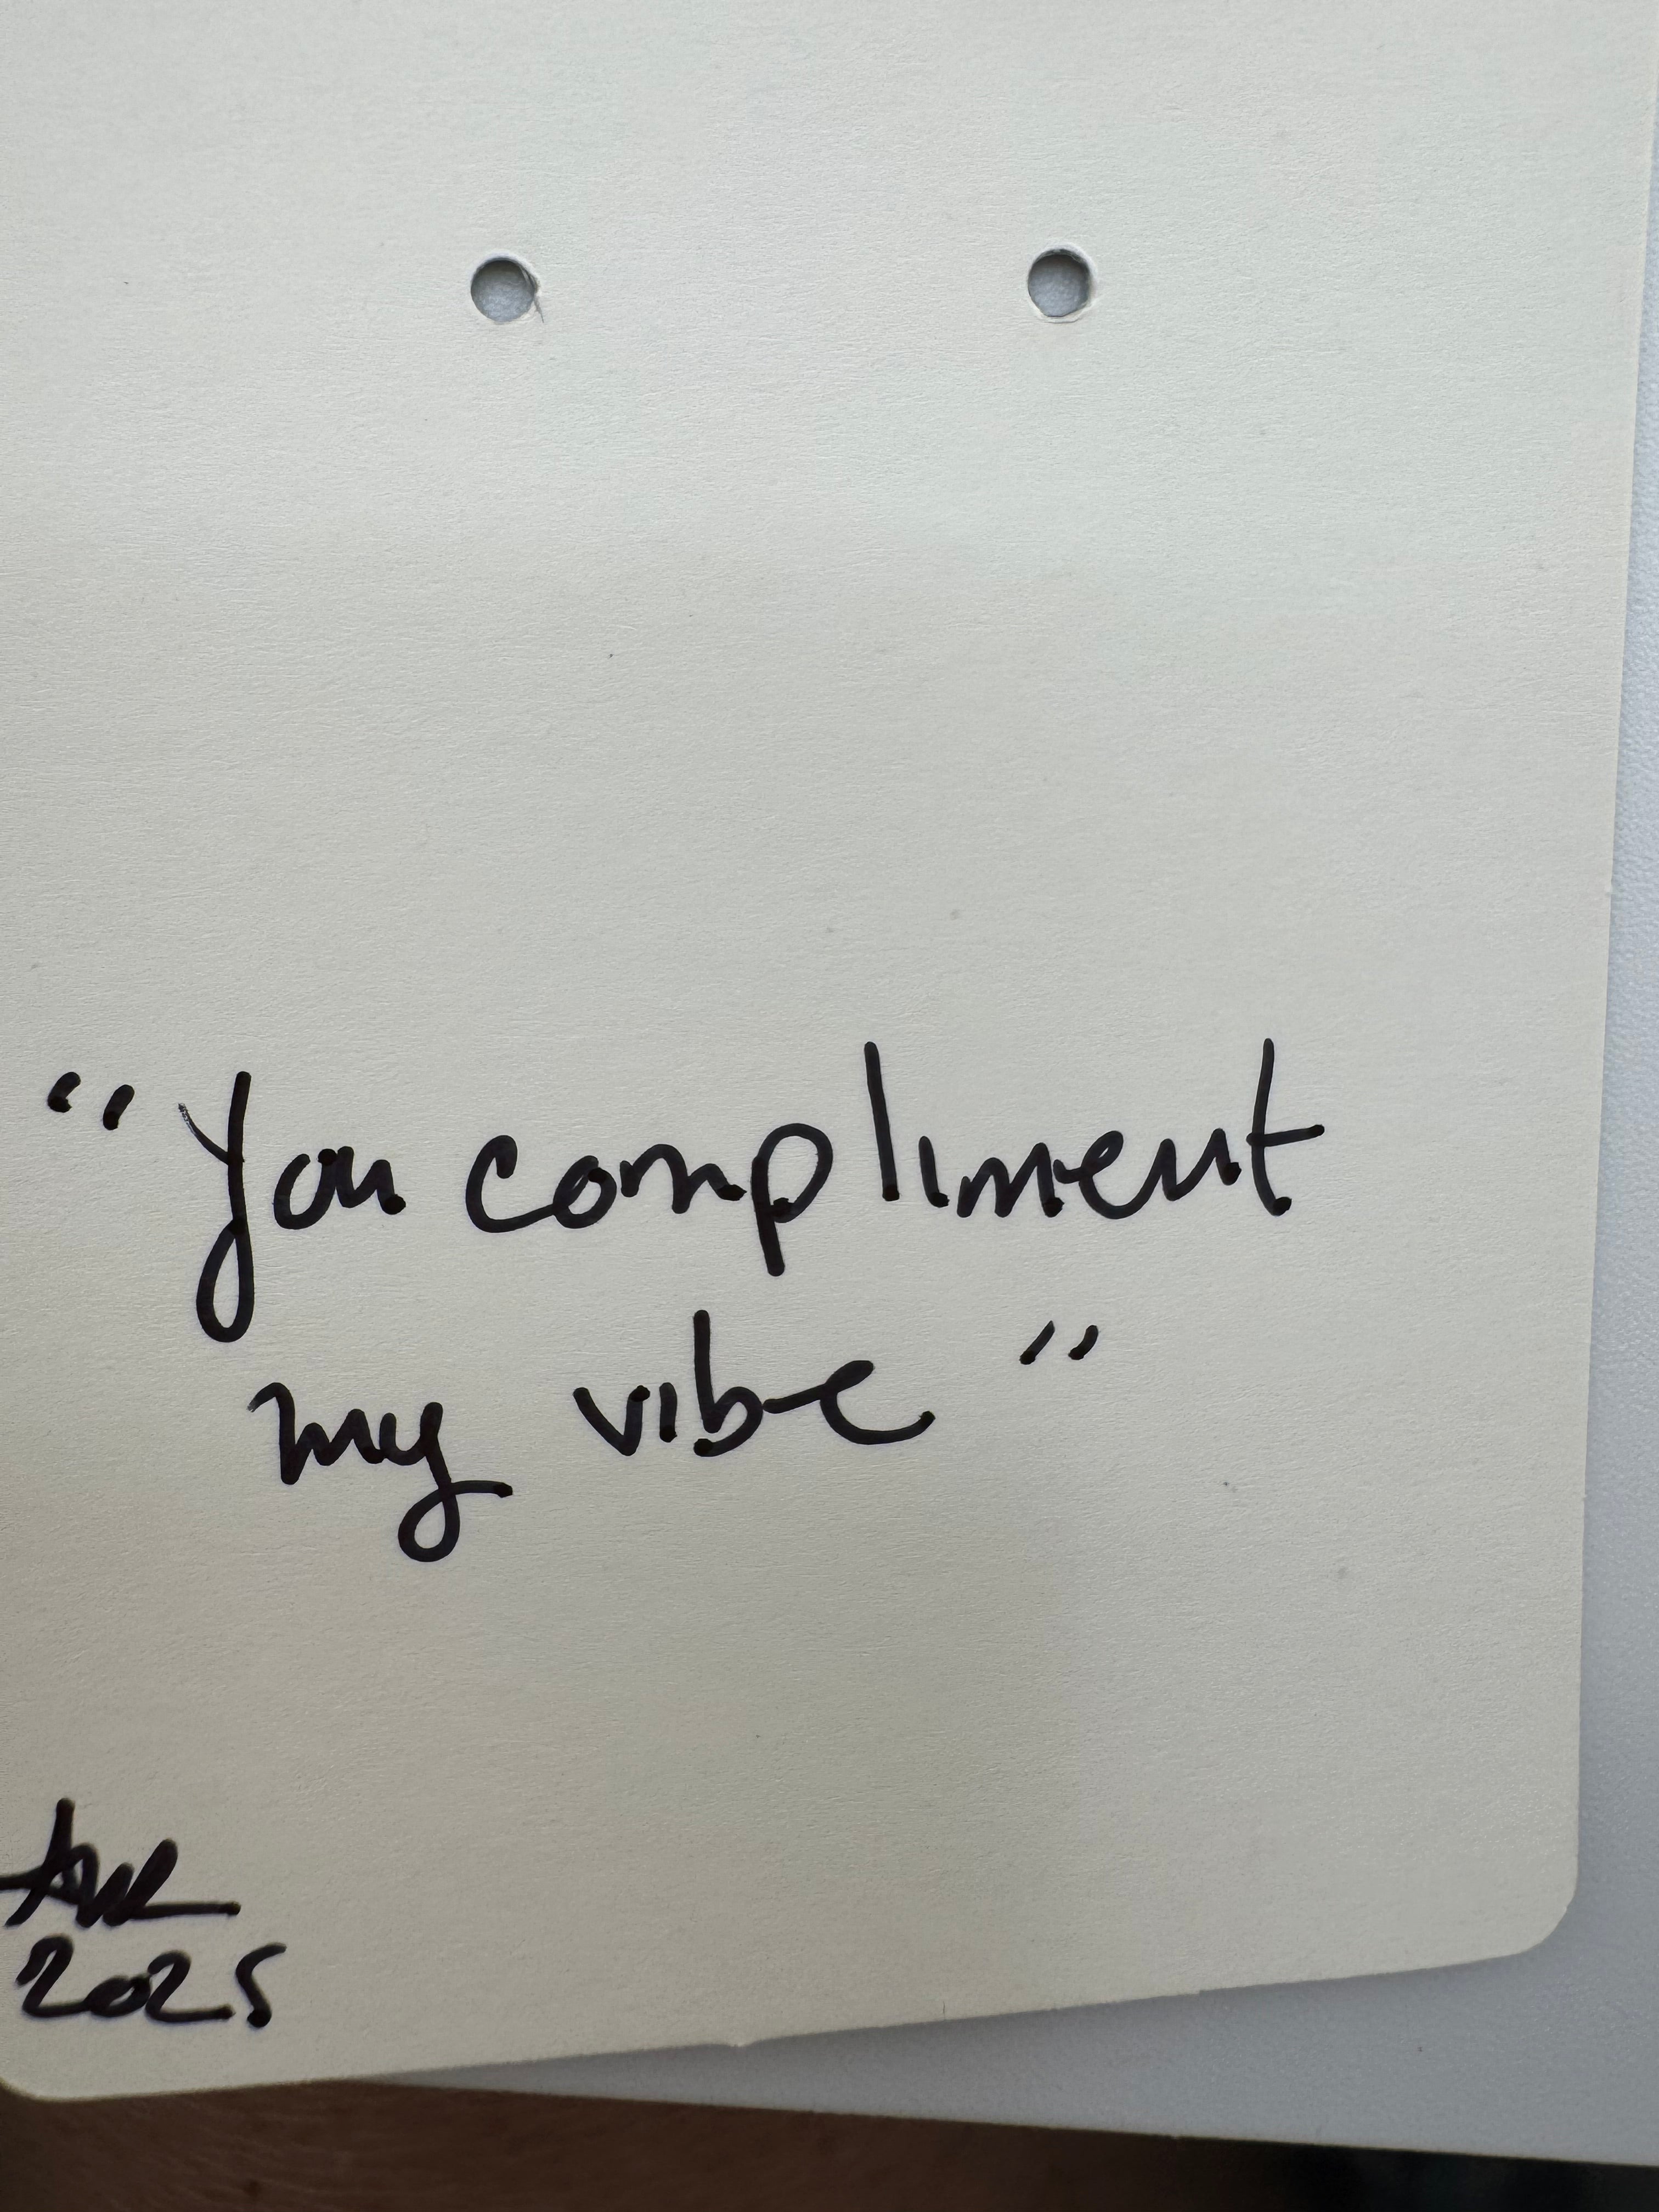 “You compliment
my vibe”
2025